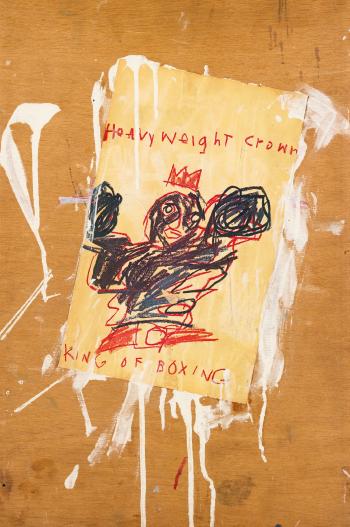 HeavyWeight Crown
KING OF BOXING